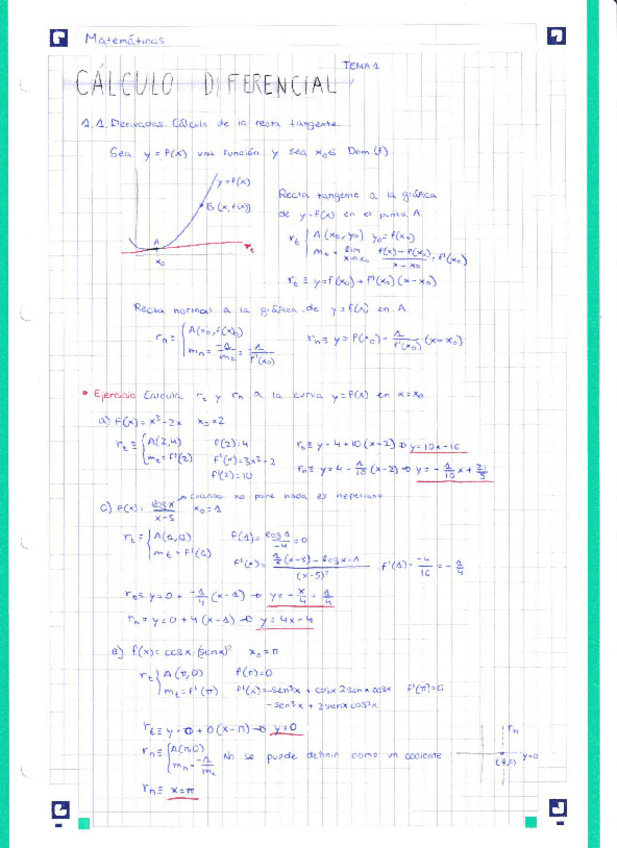 Matemáticas
TEMA 1
CÁLCULO DIFERENCIAL
1.1. Derivadas. Cálculo de la recta tangente.
Sea y = f(x) una función y sea x₀ ∈ Dom (f).
y = f(x)
B (x, f(x))
A
x₀
r_t
Recta tangente a la gráfica
de y=f(x) en el punto A.
r_t { A (x₀, y₀) y₀ = f(x₀)
m_t = lim x→x₀ (f(x) - f(x₀))/(x - x₀) = f'(x₀)
r_t ≡ y = f(x₀) + f'(x₀) (x - x₀)
Recta normal a la gráfica de y = f(x) en A
r_n ≡ { A(x₀, f(x₀))
m_n = -1/m_t = 1/f'(x₀)
r_n ≡ y = f(x₀) - 1/f'(x₀) (x - x₀)
• Ejercicio Calcula r_t y r_n a la curva y = f(x) en x = x₀
a) f(x) = x³ - 2x x₀ = 2
r_t ≡ { A(2,4) f(2) = 4
m_t = f'(2) f'(x) = 3x² - 2
f'(2) = 10
r_t ≡ y = 4 + 10 (x - 2) → y = 10x - 16
r_n ≡ y = 4 - 1/10 (x - 2) → y = - 1/10 x + 21/5
c) f(x) = log x / x-5 x₀ = 1
→ cuando no pone nada es neperiano
r_t = { A(1,0) f(1) = log 1 / -4 = 0
m_t = f'(1) f'(x) = (1/x (x-5) - log x · 1) / (x-5)² f'(1) = -4/16 = - 1/4
r_t ≡ y = 0 + -1/4 (x - 1) → y = - x/4 - 1/4
r_n = y = 0 + 4 (x - 1) → y = 4x - 4
e) f(x) = cos x · (sen x)² x₀ = π
r_t { A(π,0) f(π) = 0
m_t = f'(π) f'(x) = -sen³x + cosx 2senx cosx f'(π) = 0
- sen³x + 2 senx cos²x
r_t ≡ y = 0 + 0 (x - π) → y = 0
r_n ≡ { A(π,0)
m_n = -1/m_t
No se puede definir como un cociente
r_n ≡ x = π
r_n
y=0